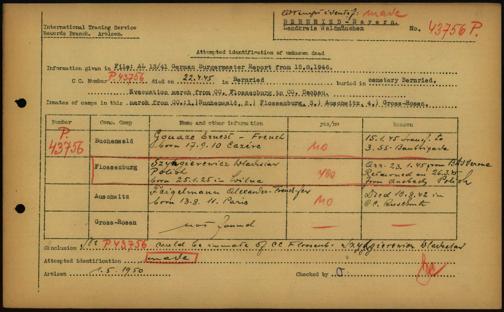 International Tracing Service
Records Branch. Arolsen.
Attempt. identif. made
BERNRIED - Bavaria.
Landkreis Waldmünchen
No. 43756 P.
Attempted identification of unknown dead
Information given in File: AL 13/41 German Burgermaster Report from 15.8.1946.
C C. Number P.43756 died on 22.4.45 in Bernried buried in cemetary Bernried.
Evacuation march from CC. Flossenburg to CC. Dachau.
Inmates of camps in this march from CC:1.)Buchenwald, 2.) Flossenburg, 3.) Auschwitz, 4.) Gross-Rosen.
Number Conc. Camp Name and other information yes/no reason
P. 43756
Buchenwald Ernest - French
born 17.9.10
no
15.1.45 transf. to
Flossenburg Wladislav
Polish
born 25.1.25 in
yes
Arr. 23.1.45 from
Returned on 26.3.45
from Ansbach Polish
Auschwitz Feigelmann Alexander
born 13.8. in Paris
no
Died 18.9.42 in
CC. Auschwitz
Gross-Rosen not found — —
Conclusion: Nr P43756 could be inmate of CC Flossenb. Wladislav
Attempted identification made
Arolsen 1.5.1950 Checked by